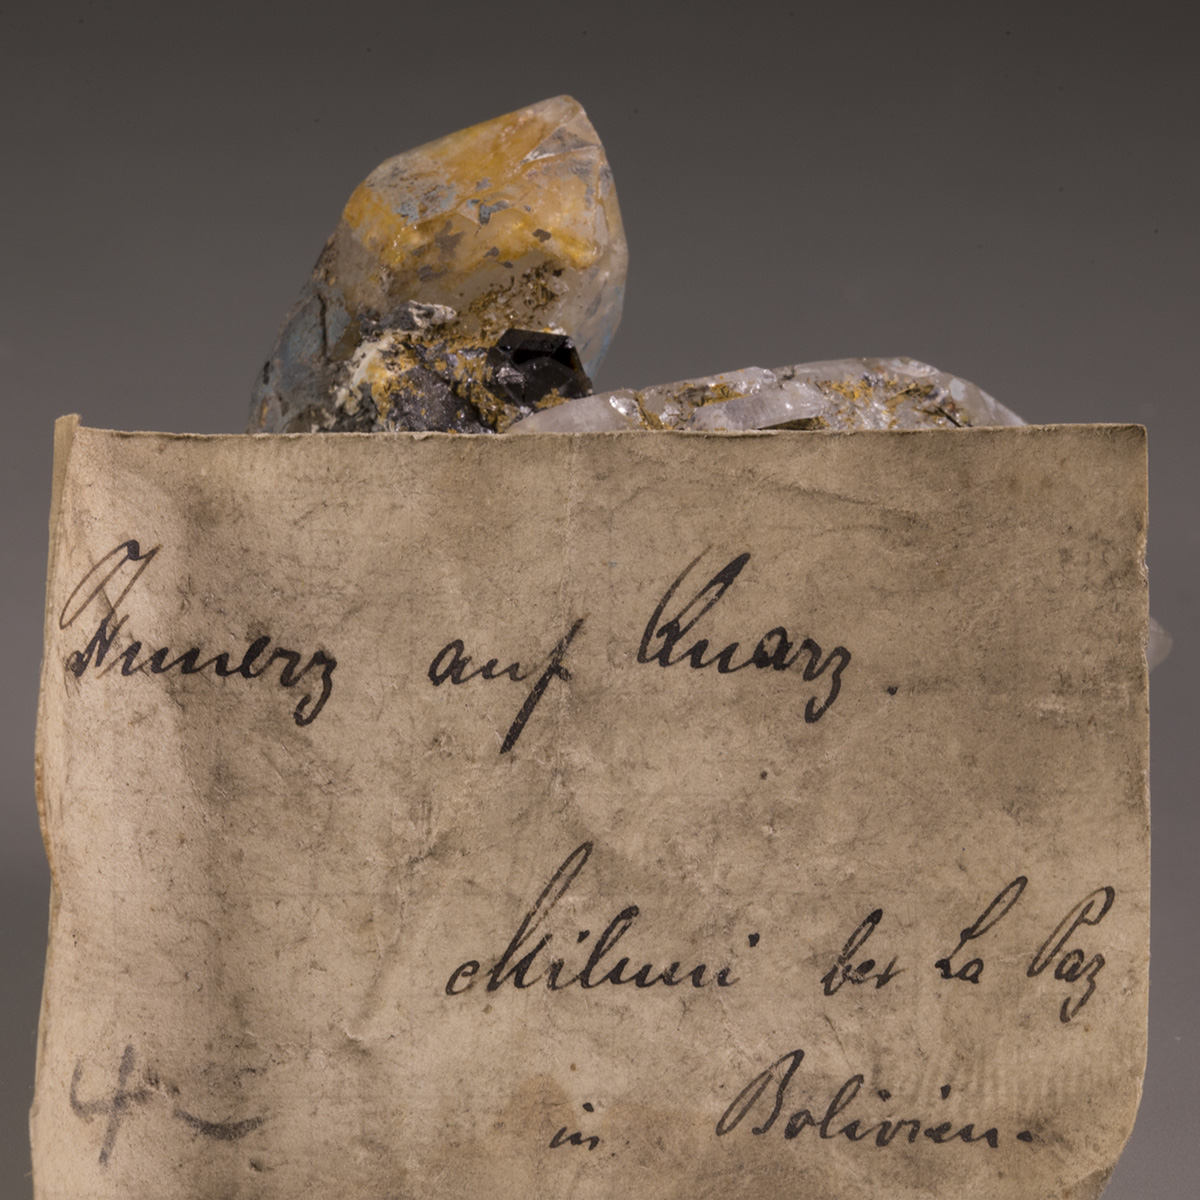 Zinnerz auf Quarz.
Miluni bei La Paz
in Bolivien.